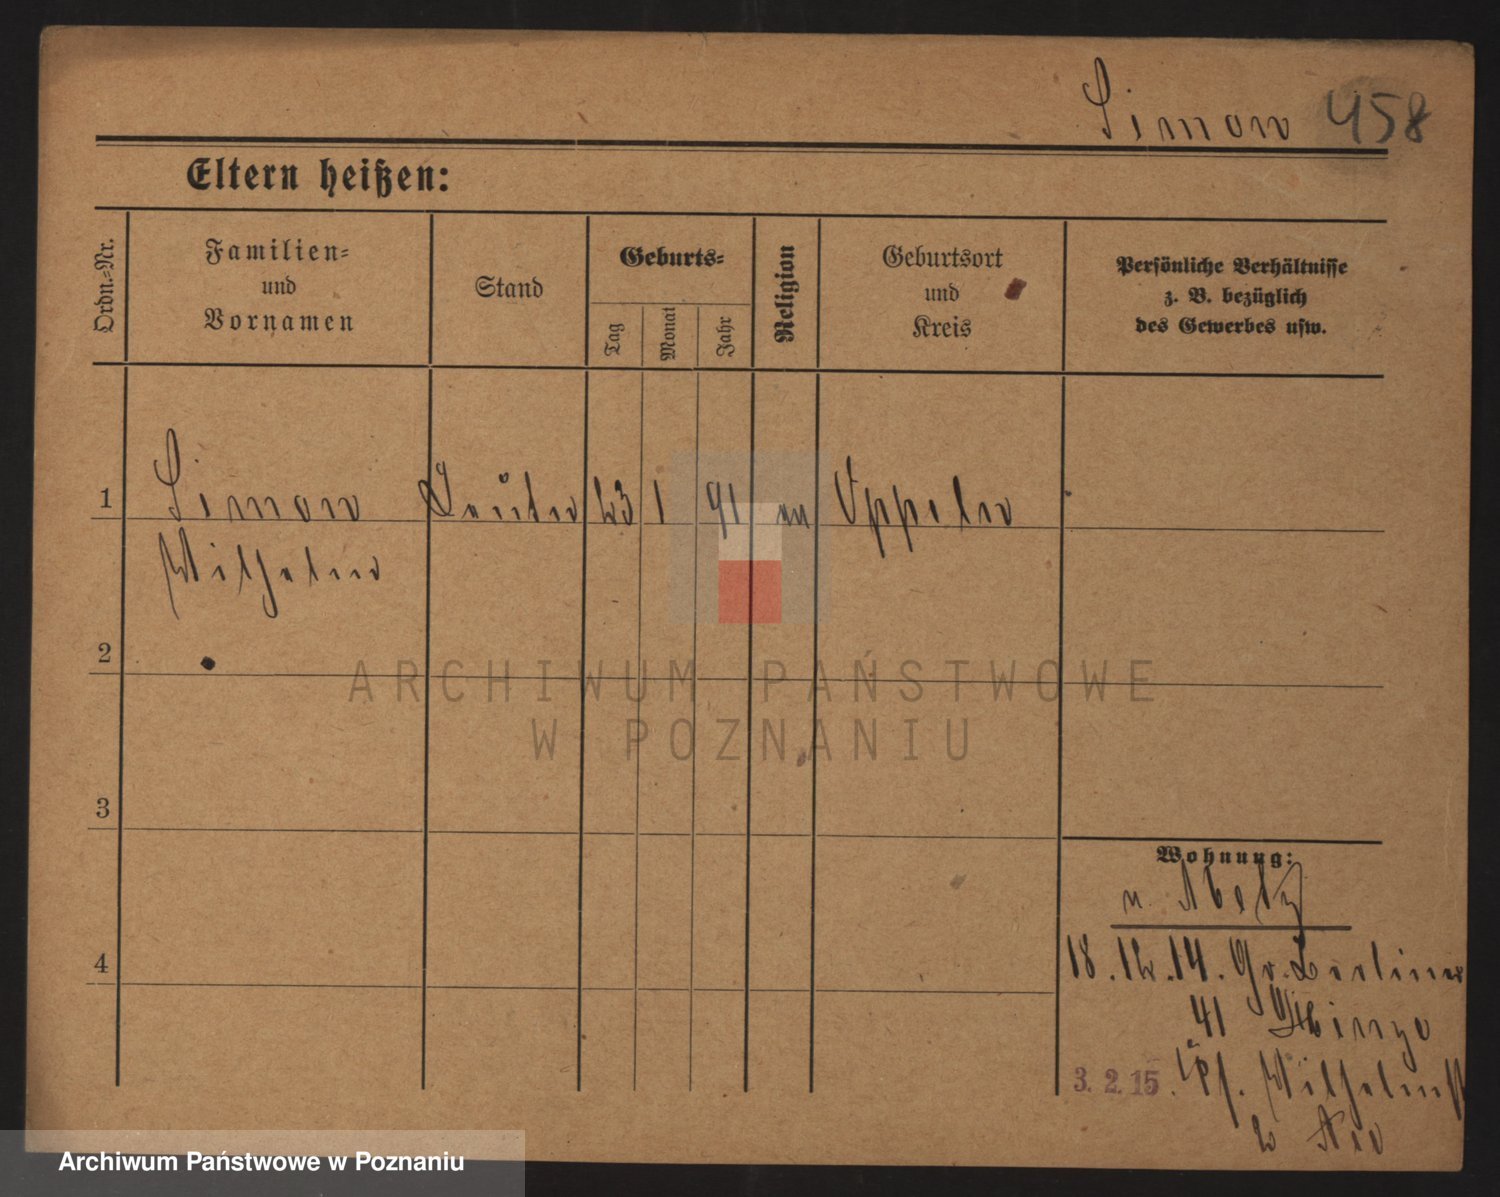 Simon 458
Eltern heißen:
Ordn.=Nr.
Familien=
und
Vornamen
Stand
Geburts=
Tag
Monat
Jahr
Religion
Geburtsort
und
Kreis
Persönliche Verhältnisse
z. B. bezüglich
des Gewerbes usw.
1 Simon 23 1 91 Oppeln
Wilhelm
2
3
4
Wohnung:
18.12.14. Gr. Berliner
41
3. 2. 15.
2
ARCHIWUM PAŃSTWOWE
W POZNANIU
Archiwum Państwowe w Poznaniu